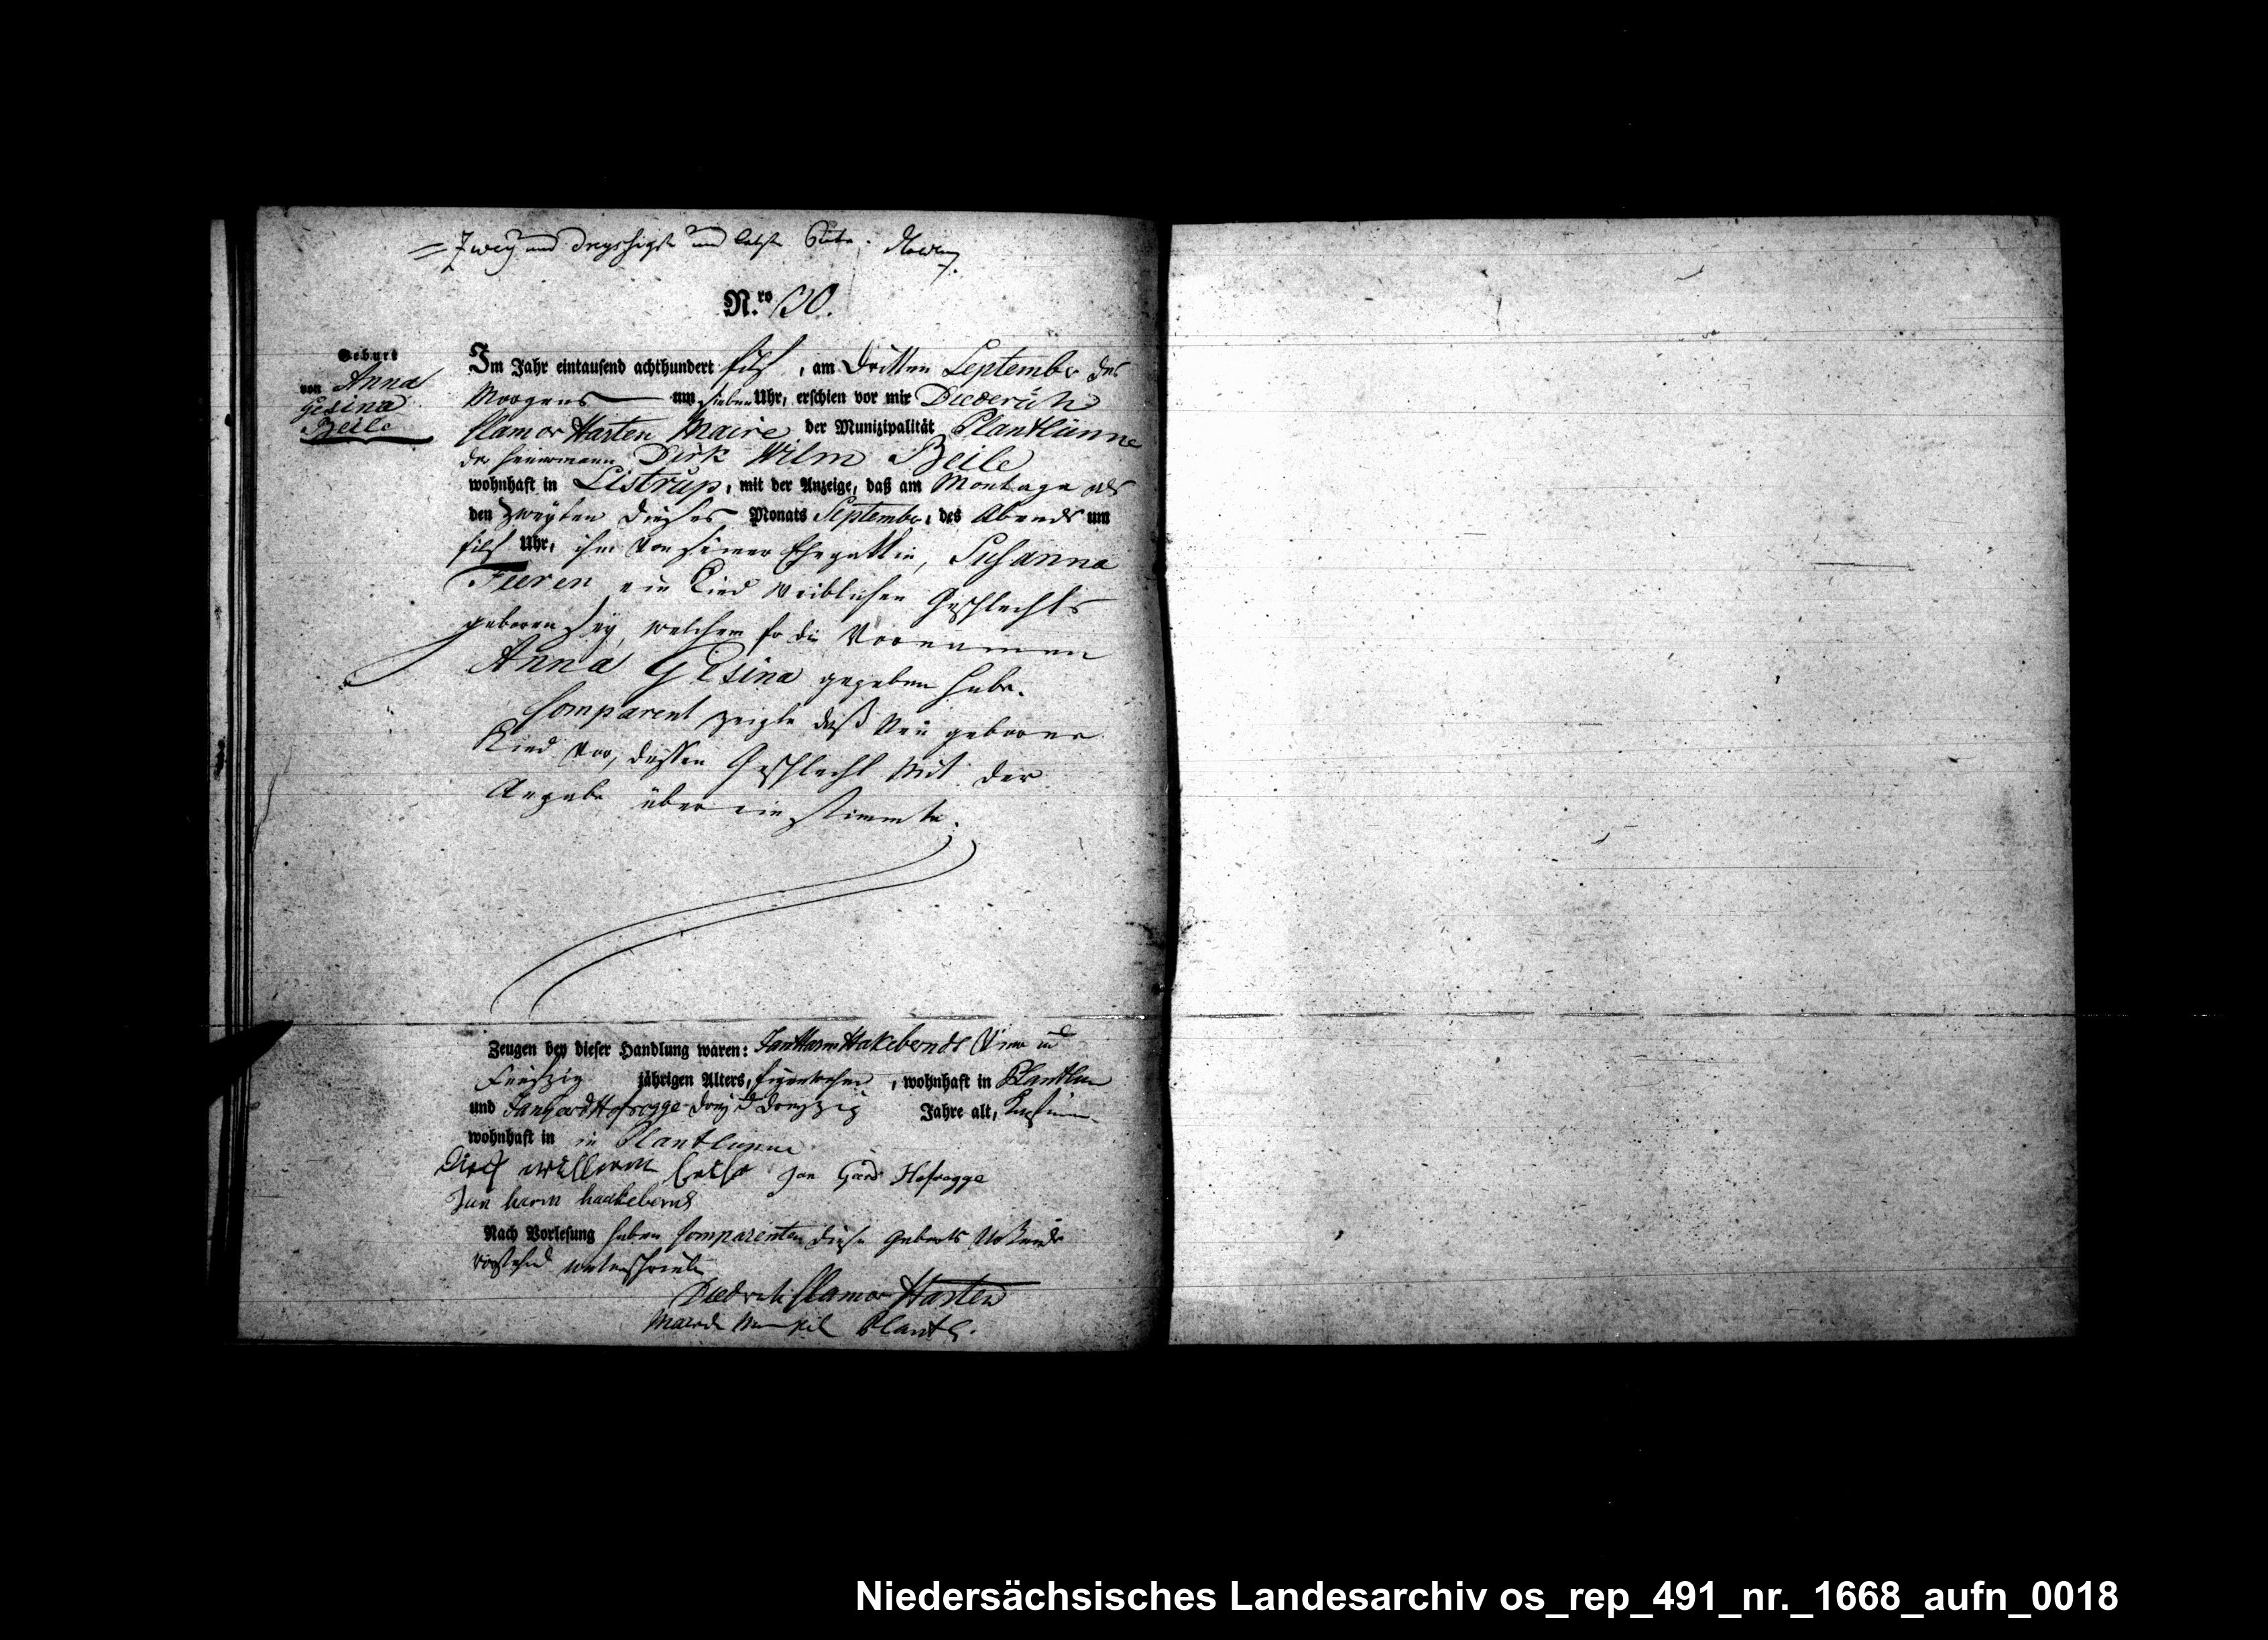 = Zwey und dreyssigste und letzte Seite.
N.ro 30.
Geburt
von Anna
Gesina
Beile
Im Jahr eintausend achthundert eilf, am dritten September des
Morgens um sieben Uhr, erschien vor mir Diederich
Clamor Harten Maire der Munizipalität Plantlünne
der Heuermann Dirk Wilm Beile
wohnhaft in Listrup, mit der Anzeige, daß am Montage als
den zweyten dieses Monats September, des Abends um
eilf Uhr, ihm von seiner Ehegattin, Susanna
Feeren ein Kind weiblichen Geschlechts
geboren sey, welchem er die Vornamen
Anna Gesina gegeben habe.
Comparent zeigte daß neu geborne
Kind vor, dessen Geschlecht mit der
Angabe überein stimmte.
Zeugen bey dieser Handlung waren: Jan Harm Hakebernds Vier und
Funfzig jährigen Alters, , wohnhaft in Plantlun
und Jan Gerd Hofrogge drey u dreyzig Jahre alt,
wohnhaft in in Plantlunne
Dirck willem beile Jan Gerd Hofrogge
Jan harm haakebernds
Nach Vorlesung haben Comparenten diese Geburts Urkunde
vorstehend unterschrieben
Diedrich Clamor Harten
Maire der Munizipal Plantl.
Niedersächsisches Landesarchiv os_rep_491_nr._1668_aufn_0018